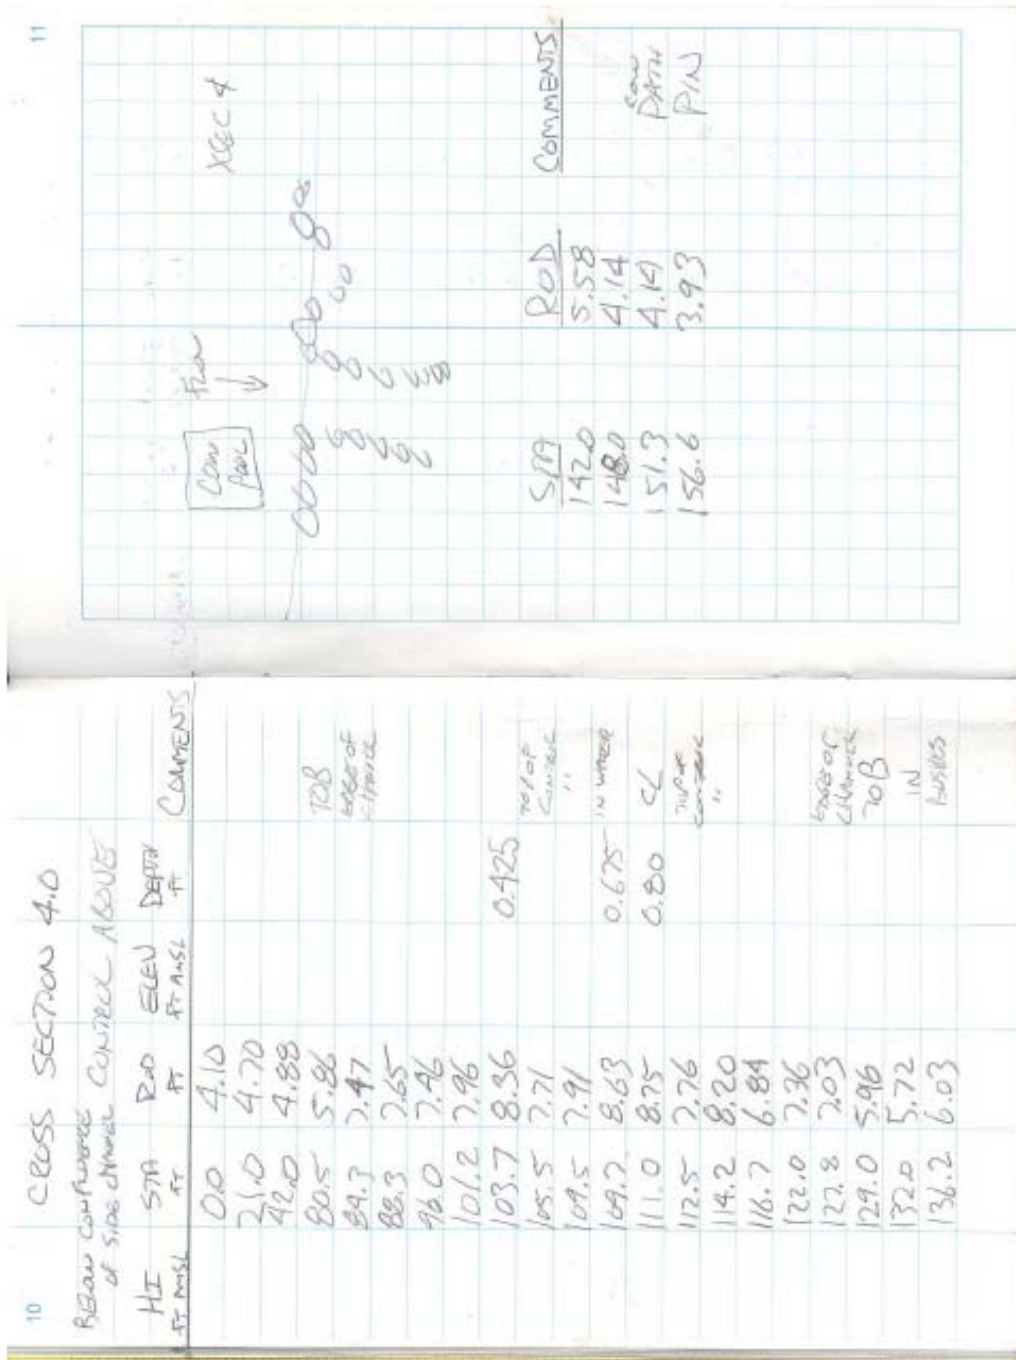 10 CROSS SECTION 4.0
BELOW CONFLUENCE
of SIDE CHANNEL CONTROL ABOVE
HI STA ROD ELEV DEPTH COMMENTS
FT AMSL FT FT FT AMSL FT
0.0 4.10
21.0 4.70
42.0 4.88
80.5 5.86 TOB
84.3 7.47 EDGE OF CHANNEL
88.3 7.65
96.0 7.46
101.2 7.96
103.7 8.36 0.425
105.5 7.71 TOP OF CONTROL
109.5 7.91 "
109.7 8.63 0.675 IN WATER
111.0 8.75 0.80 CL
112.5 7.76 TOP OF CONTROL
114.2 8.20 "
116.7 6.84
122.0 7.36
127.8 7.03 EDGE OF CHANNEL
129.0 5.96 TOB
132.0 5.72 IN
136.2 6.03 BUSHES
11
XSEC 4
FLOW
COW
POOL
STA ROD COMMENTS
142.0 5.58
148.0 4.14
151.3 4.14 COW PATH
156.6 3.93 PIN